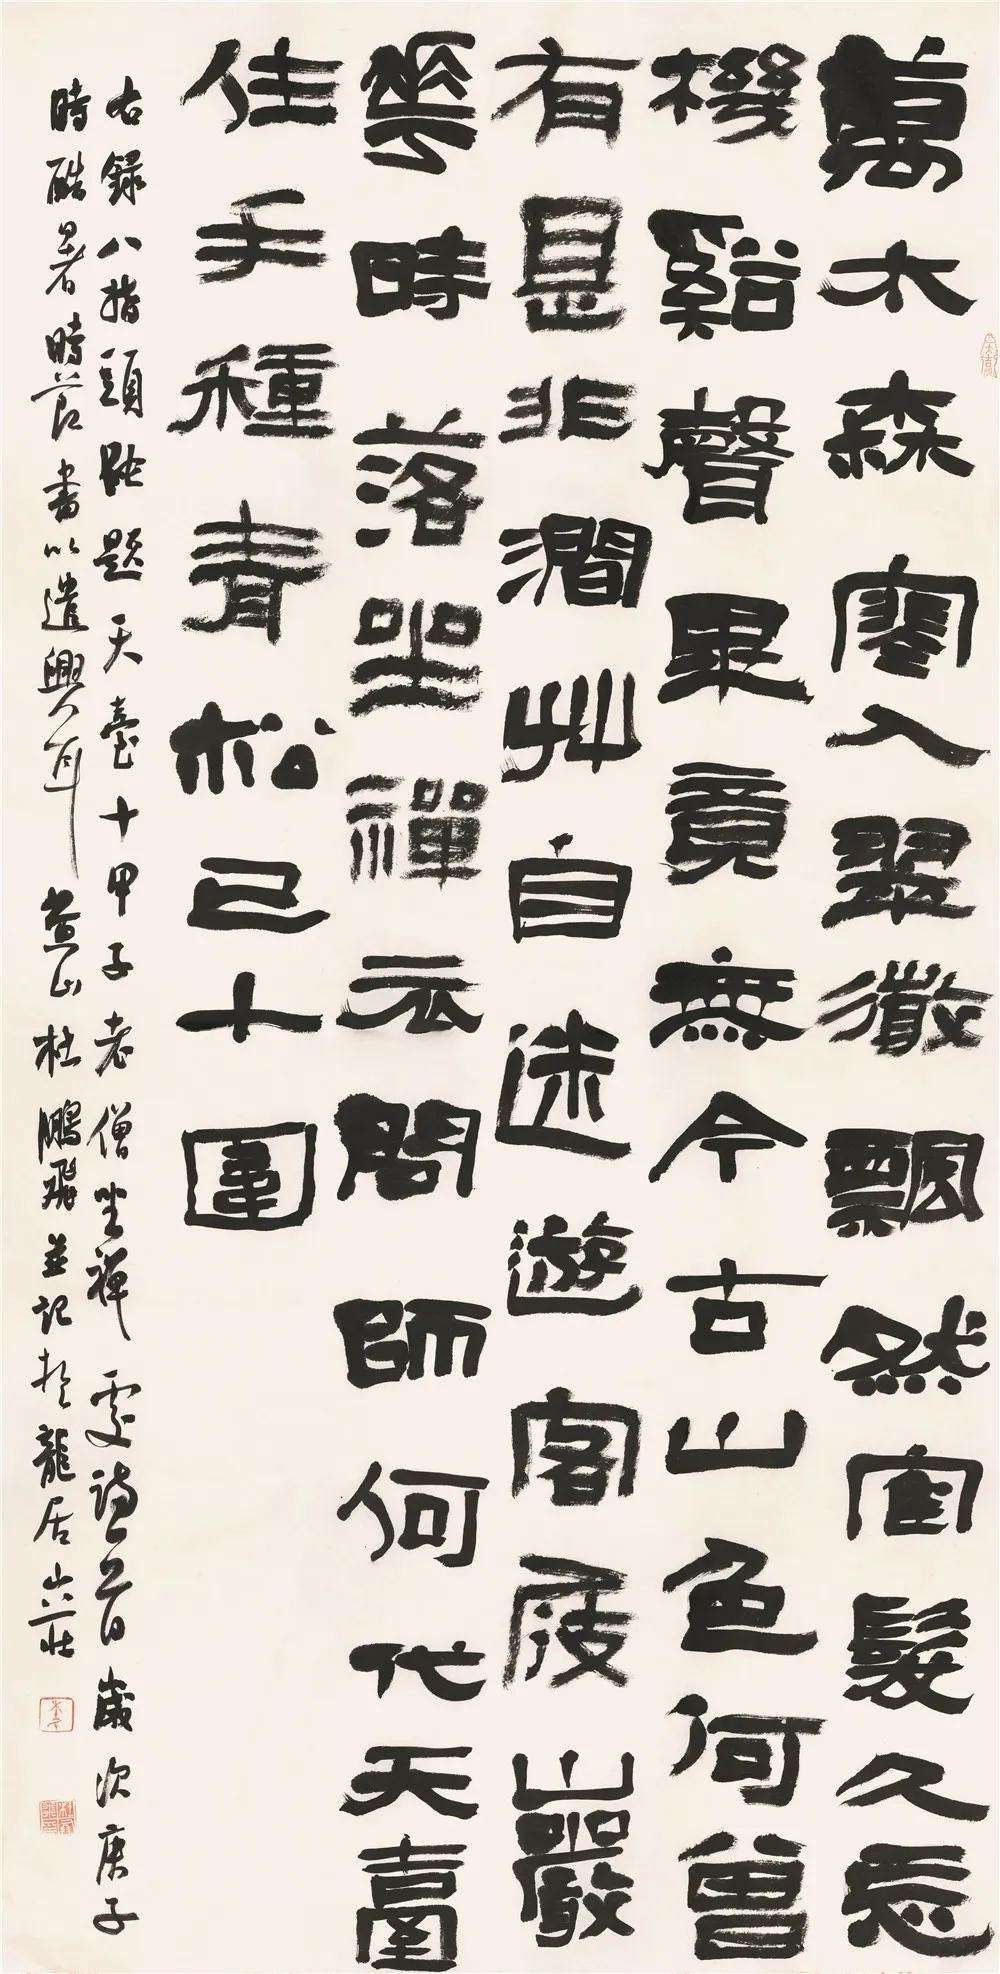 萬木森寒入翠微飄然寉髮久忘
機谿聲畢竟無今古山色何曾
有是非澗艸自迷遊客屐巖
華時落坐禪衣問師何代天臺
住手種青松已十圍
右錄八指頭陀題天臺十甲子老僧坐禪處詩一首歲次庚子
時酷暑時節書以遣興耳黃山杜鵬飛並記於龍居山莊